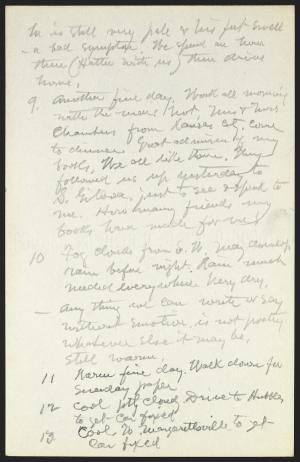 he is still very pale & his feet swell
- a bad symptom. We spend an hour
there (Hattie with us) then drive
home.
9. Another fine day. Work all morning
with the men. Hot. Mr & Mrs
Chambers from Kansas City, come
to dinner. Great admirers of my
books. We all like them. They
followed us up yesterday to
S. Gilboa, just to see & speak to
me. How many friends my
books have made for me!
10 Fog clouds from S.W. may develop
rain before night. Rain much
needed everywhere. Very dry.
— Any thing we can write or say
without emotion, is not poetry
whatever else it may be.
Still warm.
11 Warm fine day. Walk down for
Sunday paper
12 Cool, ptly cloud, Drive to Hubbles
to get Car fixed
13 Cool To Margaretville to get
Car fixed